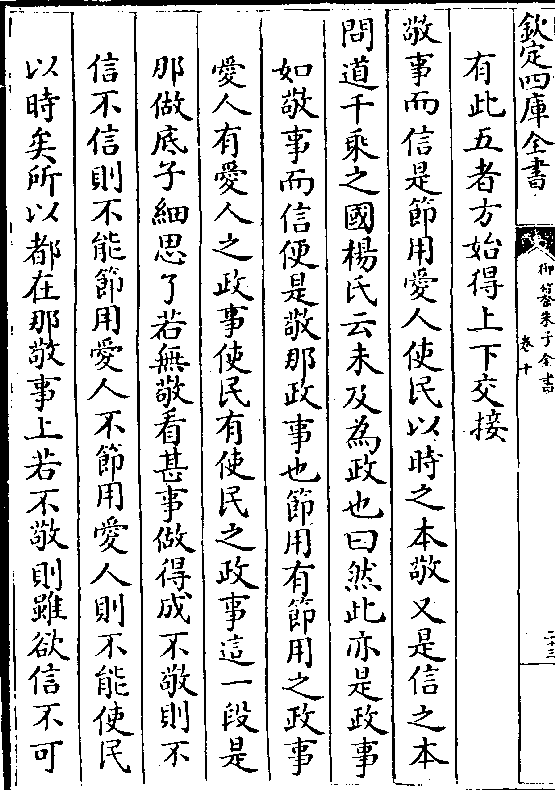 欽定四庫全書
御纂朱子全書
卷十
二十三
有此五者方始得上下交接
敬事而信是節用愛人使民以時之本敬又是信之本
問道千乘之國楊氏云未及為政也曰然此亦是政事
如敬事而信便是敬那政事也節用有節用之政事
愛人有愛人之政事使民有使民之政事這一段是
那做底子細思了若無敬看甚事做得成不敬則不
信不信則不能節用愛人不節用愛人則不能使民
以時矣所以都在那敬事上若不敬則雖欲信不可